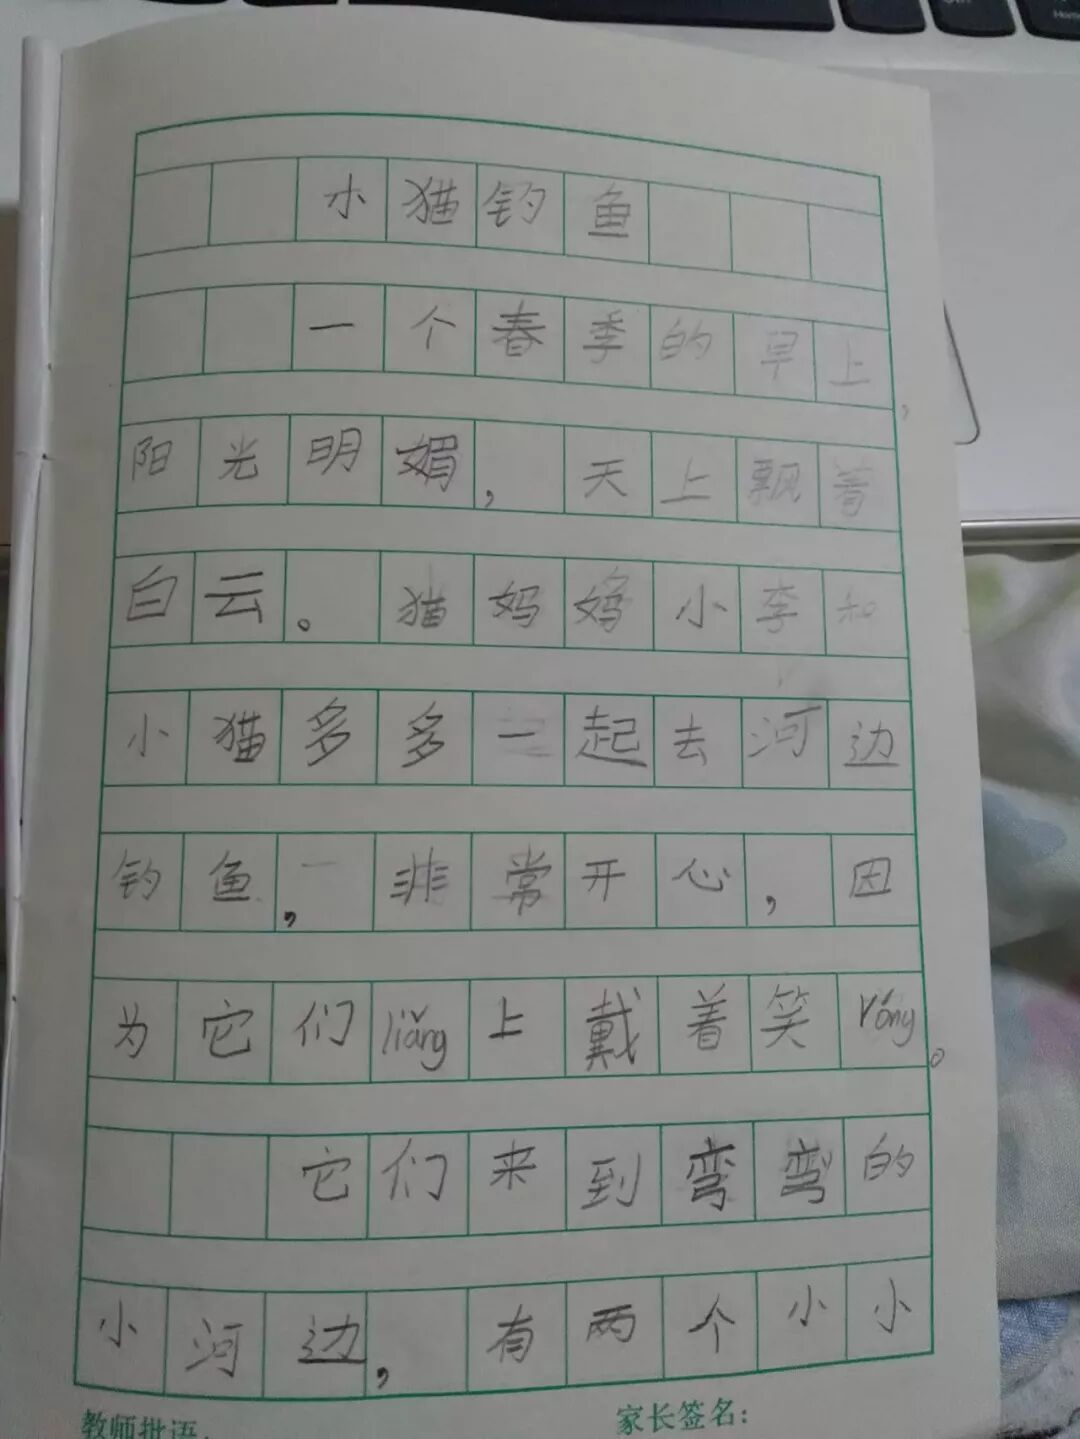 小猫钓鱼
一个春季的早上,
阳光明媚,天上飘着
白云。猫妈妈小李和
小猫多多一起去河边
钓鱼,非常开心,因
为它们liǎng上戴着笑róng。
它们来到弯弯的
小河边,有两个小小
教师批语:
家长签名: